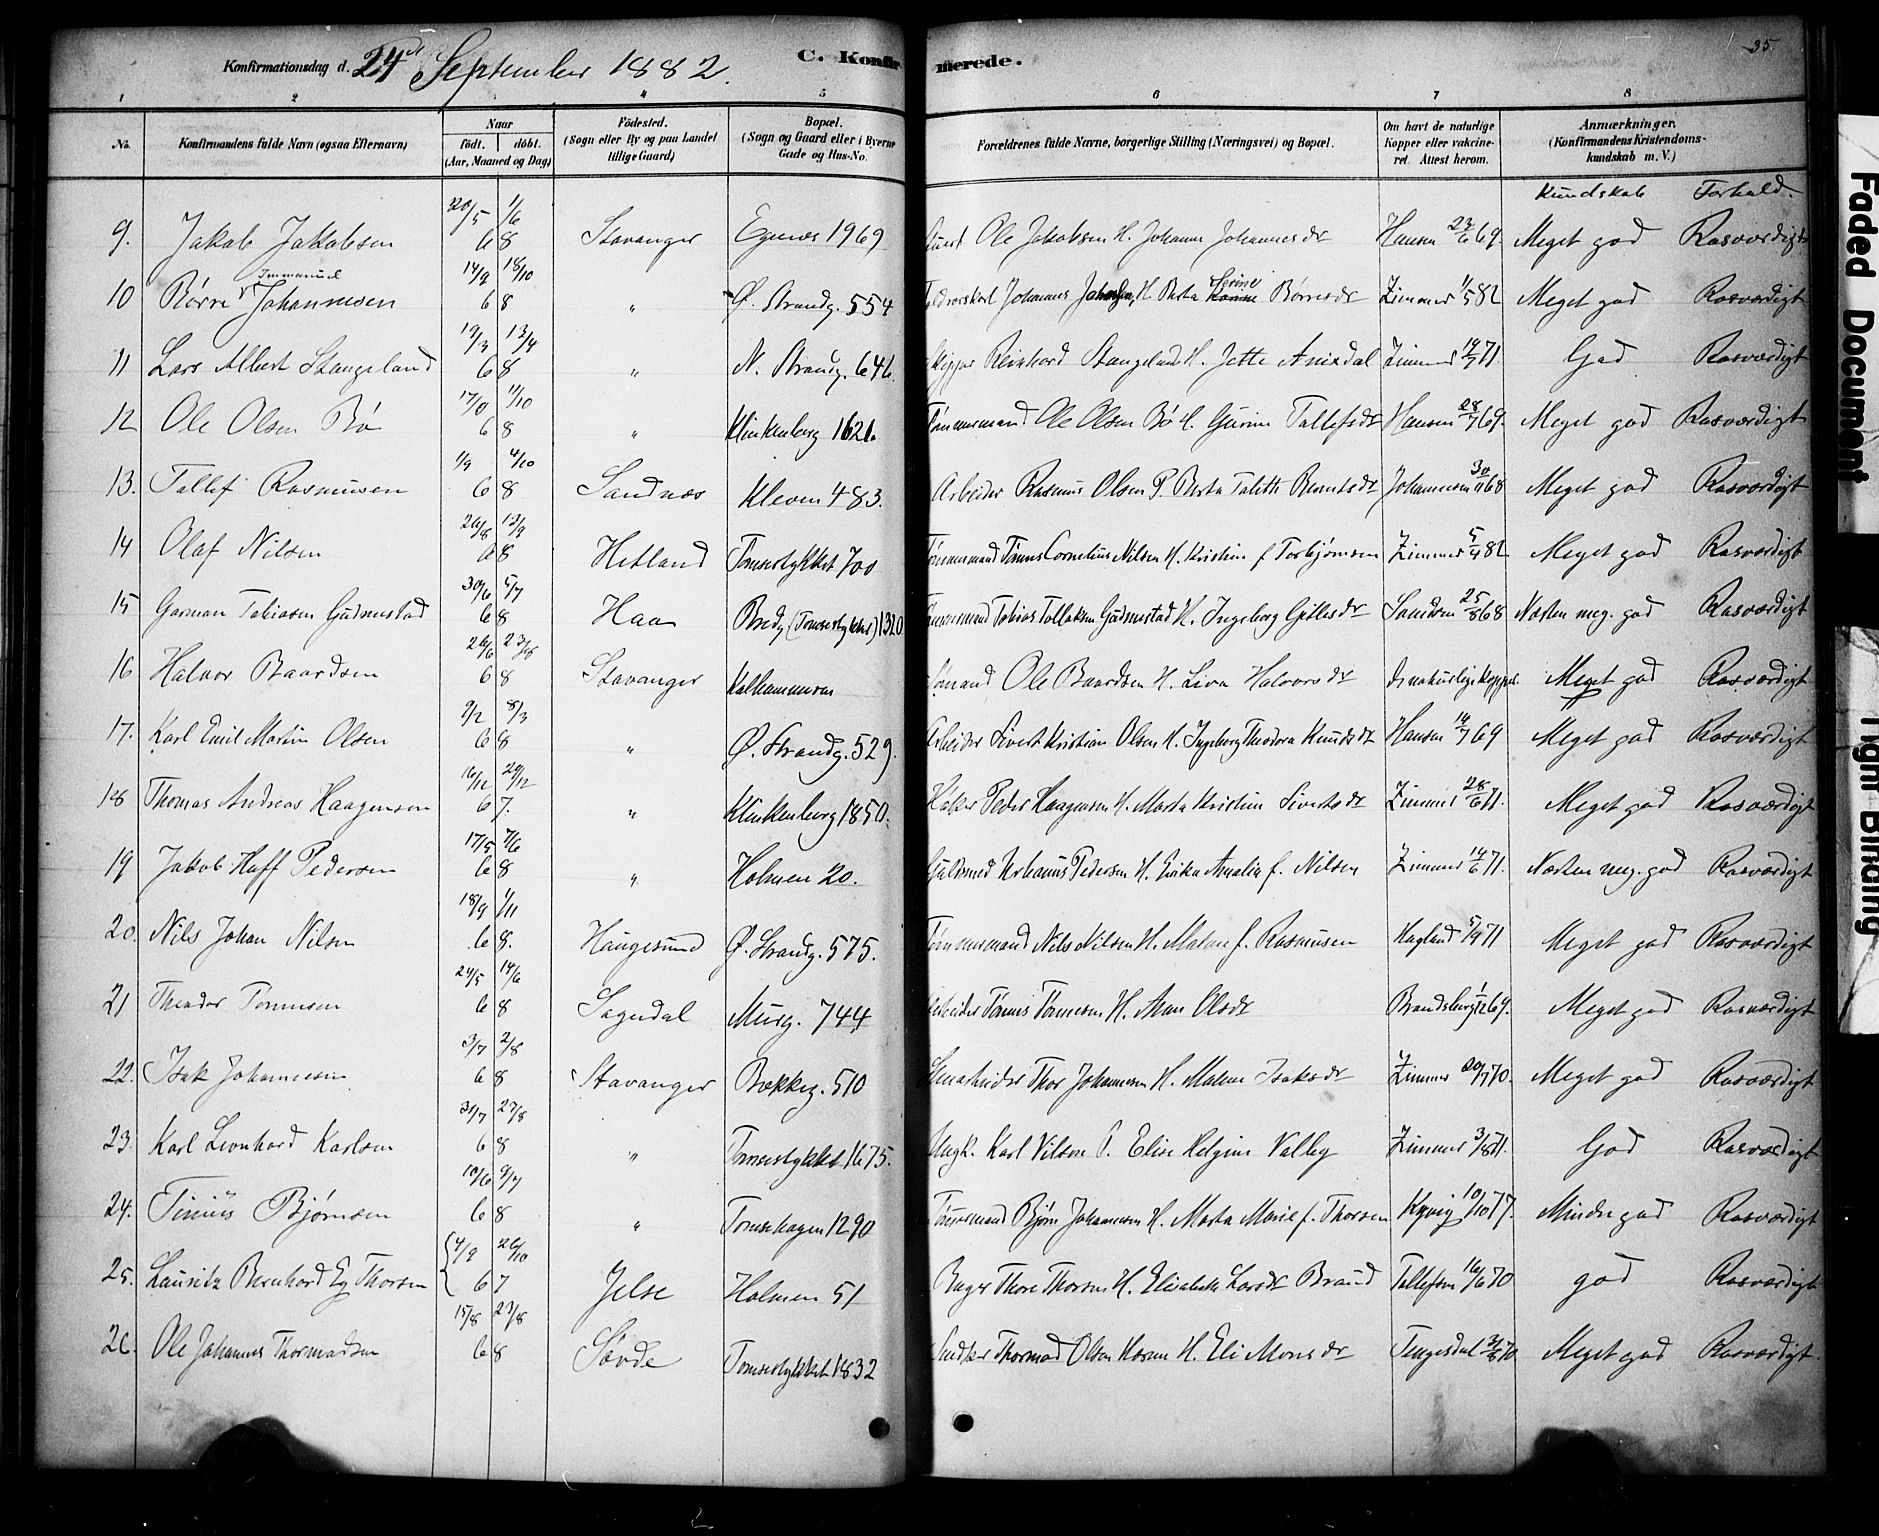 Konfirmationsdag d. 24de September 1882. C. Konfirmerede. 35.
1 2 3 4 5 6 7 8
No. Konfirmandens fulde Navn (ogsaa Efternavn) Naar født. døbt. (Aar, Maaned og Dag) Fødested. (Sogn eller By og paa Landet tillige Gaard) Bopæl. (Sogn og Gaard eller i Byerne Gade og Hus-No. Forældrenes fulde Navne, borgerlige Stilling (Næringsvei) og Bopæl. Om havt de naturlige Kopper eller vakcineret. Attest herom. Anmærkninger. (Konfirmandens Kristendomskundskab m. V.)
Kundskab Forhold.
9. Jakob Jakobsen 20/5 68 1/6 Stavanger Egenes 1969 Ole Jakobsen H. Johanne Johannesdr Hansen 23/6 69. Meget god Rosværdigt
10 Børre Immanuel Johannesen 14/9 68 18/10 " Ø. Strandg. 554 Johannes H. Berta Serine Børresdr Zimmer 1/5 82 Meget god Rosværdigt
11 Lars Albert Stangeland 19/3 68 13/4 " N. Strandg. 646. Skipper Reinhard Stangeland H. Jette Anixdal Zimmer 19/7 71. God Rosværdigt
12 Ole Olsen Bø 17/8 68 11/10 " Klinkenberg 1621. Tømmermand Ole Olsen Bø H. Gurine Tollefsdr Hansen 28/7 69. Meget god Rosværdigt
13. Tollef Rasmusen 1/9 68 4/10 Sandnæs Kleven 483. Arbeider Rasmus Olsen P. Berta Talette Berntsdr Johannesen 30/11 68 Meget god Rosværdigt
14 Olaf Nilsen 26/8 68 12/9 Hetland Tomsestykket 700 Tømmermand Tønnes Cornelius Nilsen H. Kristine f Torbjørnsen Zimmer 5/4 82 Meget god Rosværdigt
15 Gorman Tobiasen Gudmestad 30/6 68 5/7 Haa Bredg. (Tomsestykket) 1320 Tømmermand Tobias Tollaksen Gudmestad H. Ingeborg Gitlesdr Samdsen 25/8 68 Næsten meg. god Rosværdigt
16 Halvor Baardsen 26/6 68 23/8 Stavanger Kalhammeren Sømand Ole Baardsen H. Liva Halvorsdr d. naturlige Kopper. Meget god Rosværdigt
17. Karl Emil Martin Olsen 9/2 68 8/3 " Ø. Strandg. 529. Arbeider Sivert Kristian Olsen H. Ingeborg Theodora Knudsdr Hansen 14/7 69 Meget god Rosværdigt
18 Thomas Andreas Haagensen 16/12 67. 29/12 " Klinkenberg 1850. Peder Haagensen H. Marta Kristine Sivertsdr Zimmer 28/6 71. Meget god Rosværdigt
19 Jakob Hoff Pedersen 17/5 68 7/6 " Holmen 20. Guldsmed Urbanus Pedersen H. Erika Amalia f. Nilsen Zimmer 14/6 71. Næsten meg. god Rosværdigt
20. Nils Johan Nilsen 18/9 68. 1/11 Haugesund Ø. Strandg. 575. Tømmermand Nils Nilsen H. Malene f. Rasmusen Hagland 5/9 71 Meget god Rosværdigt
21 Theodor Tønnesen 24/5 68 14/6 Sogndal Murg. 744 Arbeider Tønnes Tønnesen H. Anne Olsdr Brandsberg 1/12 69. Meget god Rosværdigt
22. Isak Johannesen 3/7 68 2/8 Stavanger Bækkeg. 510 Thor Johannesen H. Malene Isaksdr Zimmer 20/7 70. Meget god Rosværdigt
23. Karl Leonhard Karlsen 31/7 68 27/8 " Tomsestykket 1675. Ungk. Karl Vilson P. Elise Helgine Valby Zimmer 3/8 71. God Rosværdigt
24. Tinius Bjørnsen 10/6 68 9/7 " Tomsehagen 1290 Tømmermand Bjørn Johannesen H. Marta Marie f. Thorsen Kyvig 10/10 77. Mindre god Rosværdigt
25. Lauritz Bernhard Eg Thorsen 4/9 67 26/10 Jelse Holmen 51 Bager Thore Thorsen H. Elisabeth Larsdr Braud Tollefsen 16/6 70 god Rosværdigt
26. Ole Johannes Thormodsen 15/8 68 23/8 Søvde Tomsestykket 1832 Thormod Olsen H. Eli Monsdr Tengesdal Meget god Rosværdigt.
Faded Document
Tight Binding